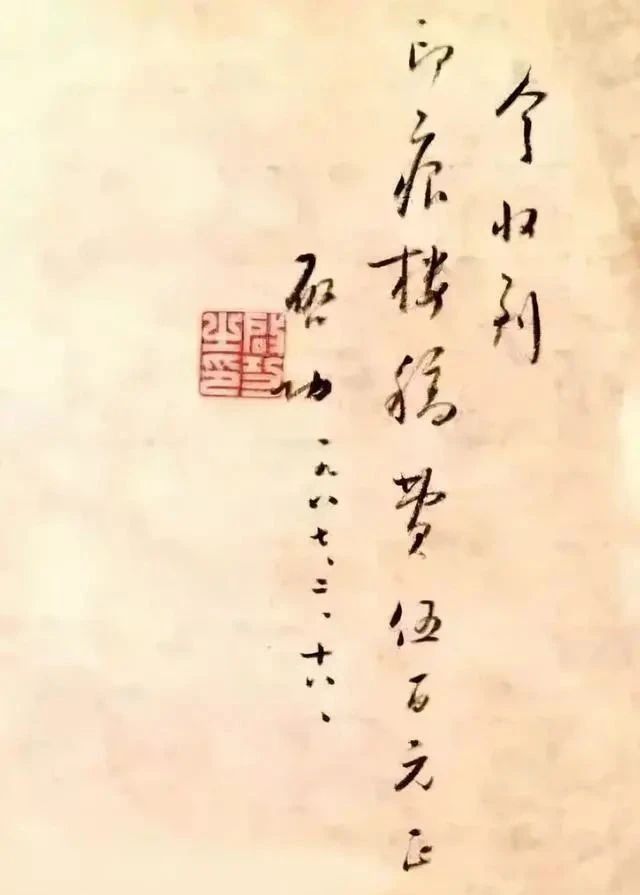 今收到
印痕楼稿费伍百元正
启功 一九八七、二、十八、
启功之印